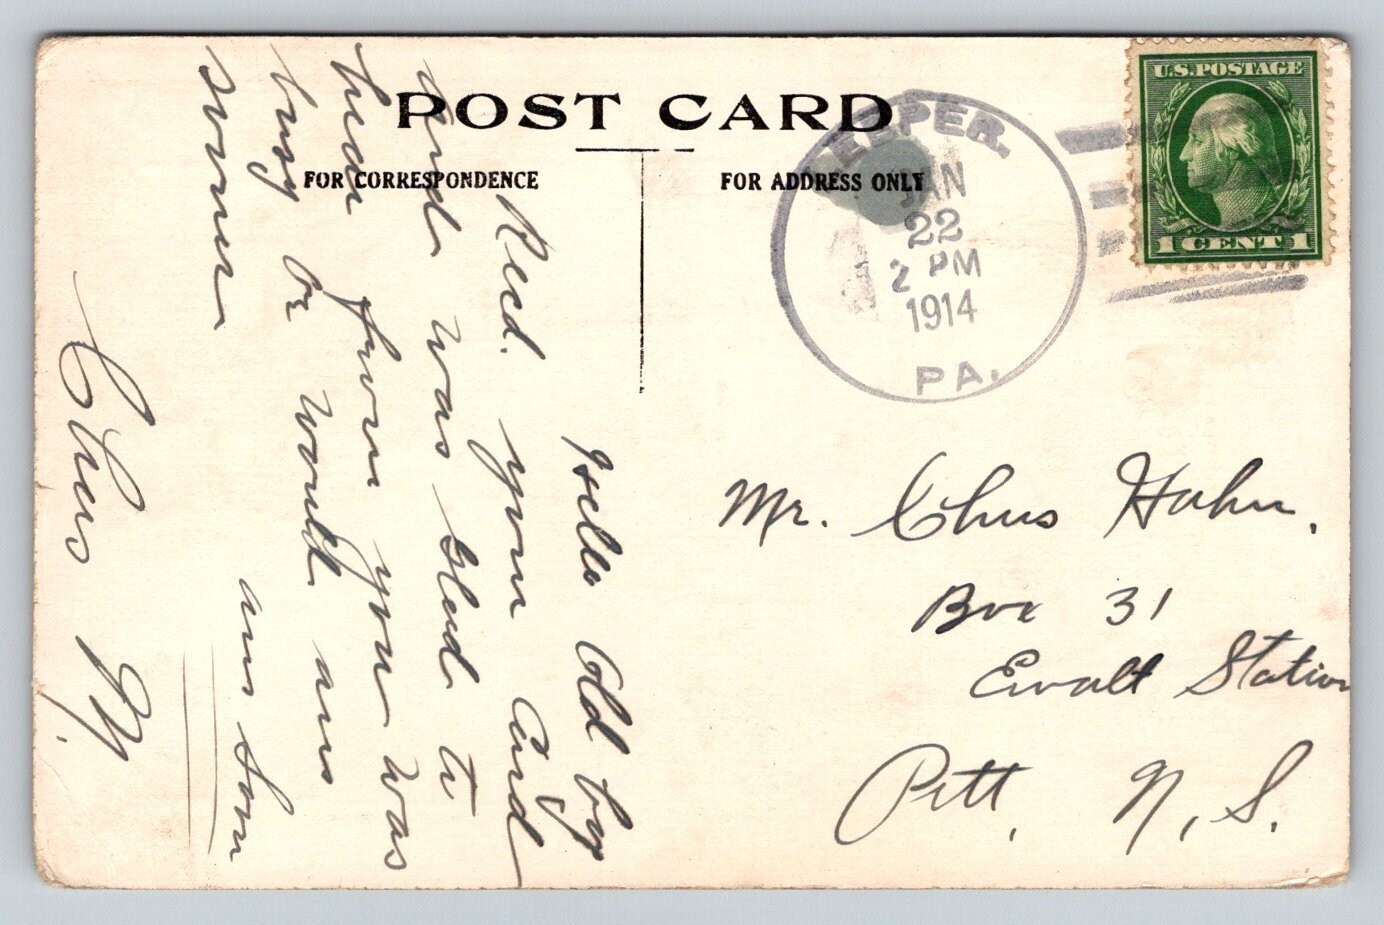 POST CARD
FOR CORRESPONDENCE
FOR ADDRESS ONLY
LEEPER.
JAN
22
2 PM
1914
PA.
U.S. POSTAGE
1 CENT 1
Hello Old boy
Recd. your Card
and was glad to
hear from you was
busy or would ans
sooner
ans soon
Chus M.
Mr. Chus Hahn.
Box 31
Ewalt Station
Pitt, N, S.